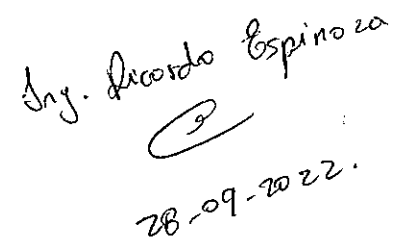 Ing. Ricardo Espinoza
28-09-2022.